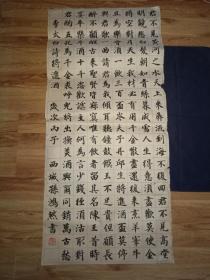 君不見黃河之水天上來奔流到海不復回君不見高堂
明鏡悲白髮朝如青絲暮成雪人生得意須盡歡莫使金
樽空對月天生我材必有用千金散盡還復來烹羊宰牛
且為樂會須一飲三百杯岑夫子丹丘生將進酒杯莫停
與君歌一曲請君為我傾耳聽鐘鼓饌玉不足貴但願長
醉不願醒古來聖賢皆寂寞惟有飲者留其名陳王昔時
宴平樂斗酒十千恣歡謔主人何為言少錢徑須沽取對
君酌五花馬千金裘呼兒將出換美酒與爾同銷萬古愁
李太白詩將進酒 歲次丙子 西城孫鴻然書